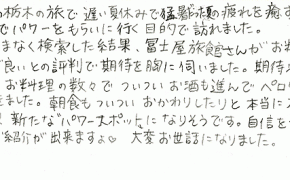 の栃木の旅で遅い夏休みで猛暑の夏の疲れを癒す
でパワーをもらいに行く目的で訪れました。
まなく検索した結果、冨士屋旅館さんがお料
良いとの評判で期待を胸に伺いました。期待
お料理の数々でついついお酒も進んでペロ
きました。朝食もついついおかわりしたりと本当に
新たな"パワースポット"になりそうです。自信を
ご紹介が出来ますよ♡ 大変お世話になりました。